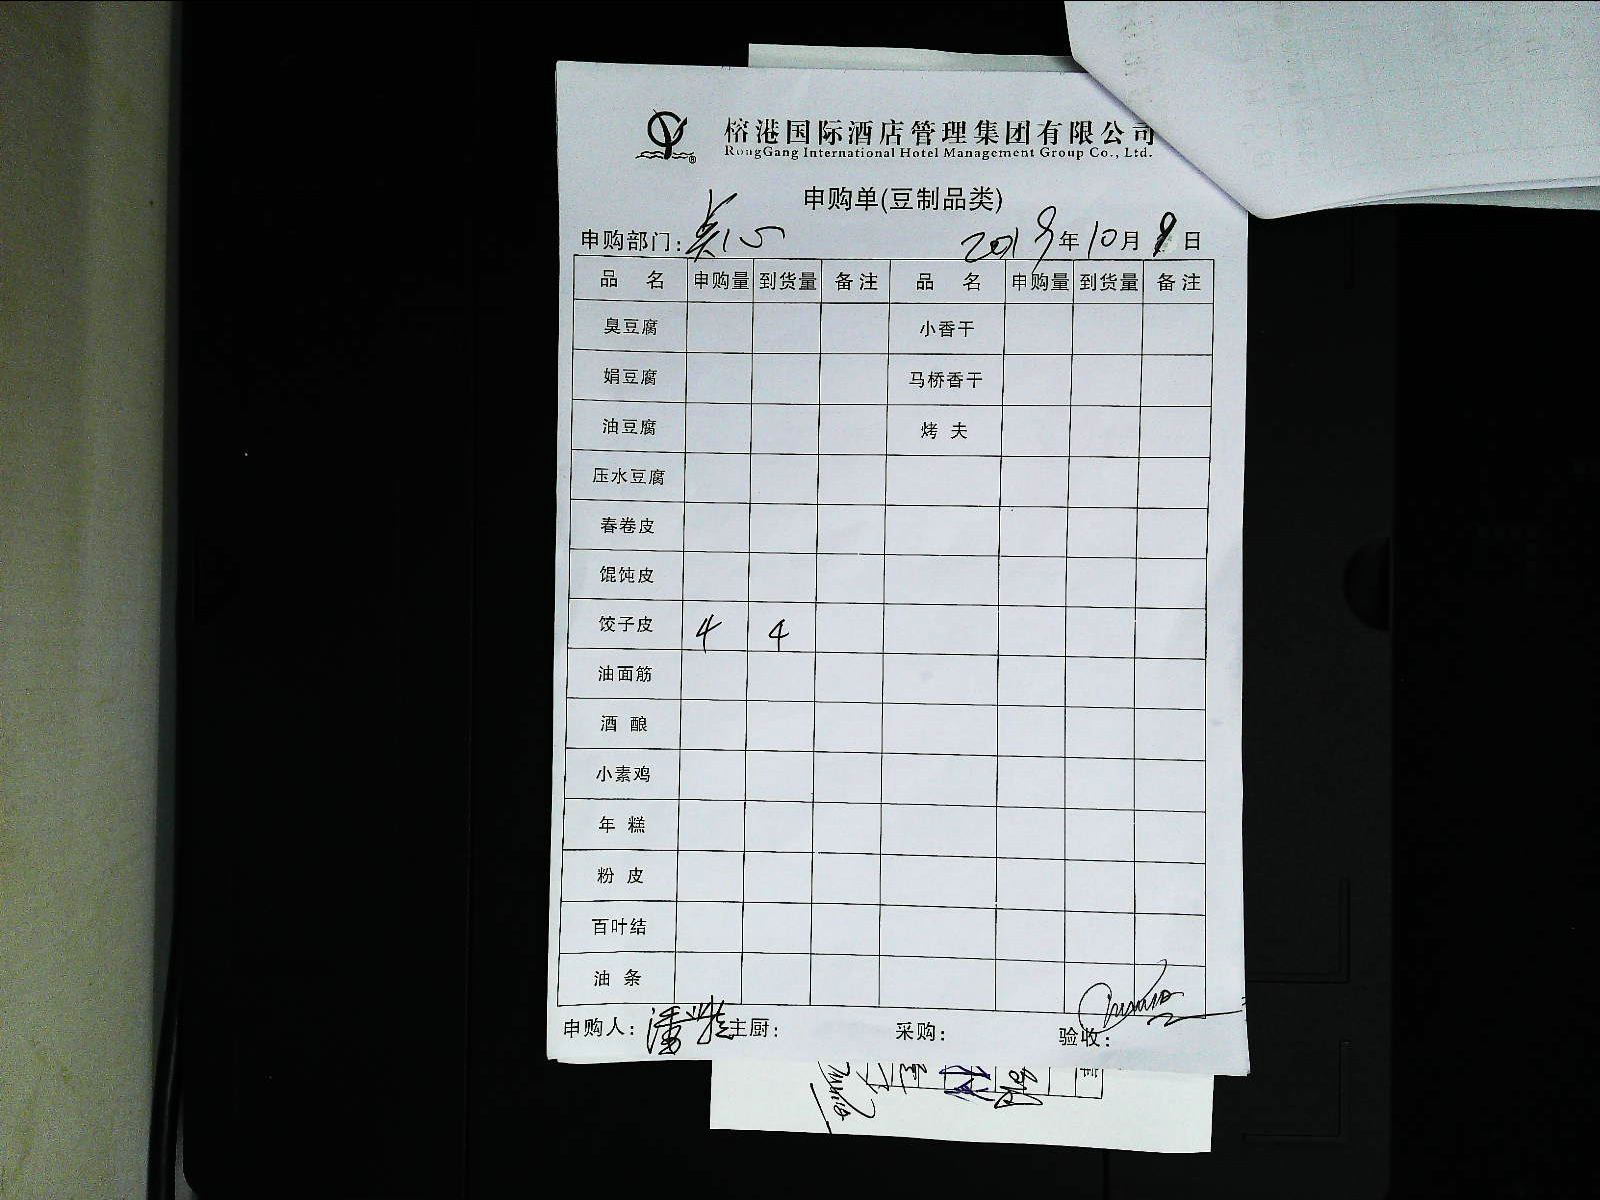 榕港国际酒店管理集团有限公司
RongGang International Hotel Management Group Co., Ltd.
申购单(豆制品类)
申购部门: 点心 2019年10月9日
品名 申购量 到货量 备注 品名 申购量 到货量 备注
臭豆腐 小香干
娟豆腐 马桥香干
油豆腐 烤夫
压水豆腐
春卷皮
馄饨皮
饺子皮 4 4
油面筋
酒酿
小素鸡
年糕
粉皮
百叶结
油条
申购人: 主厨: 采购: 验收: